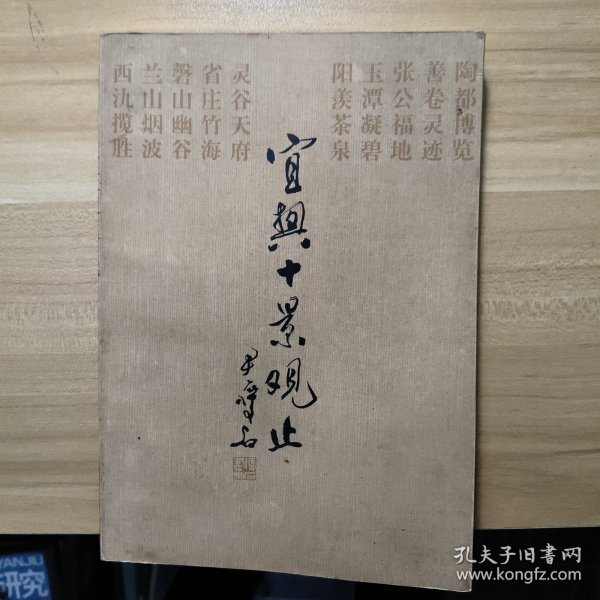 陶都博览
善卷灵迹
张公福地
玉潭凝碧
阳羡茶泉
灵谷天府
省庄竹海
磬山幽谷
兰山烟波
西氿揽胜
宜興十景观止
YANJIU
研究
孔夫子旧书网
www.kongfz.com